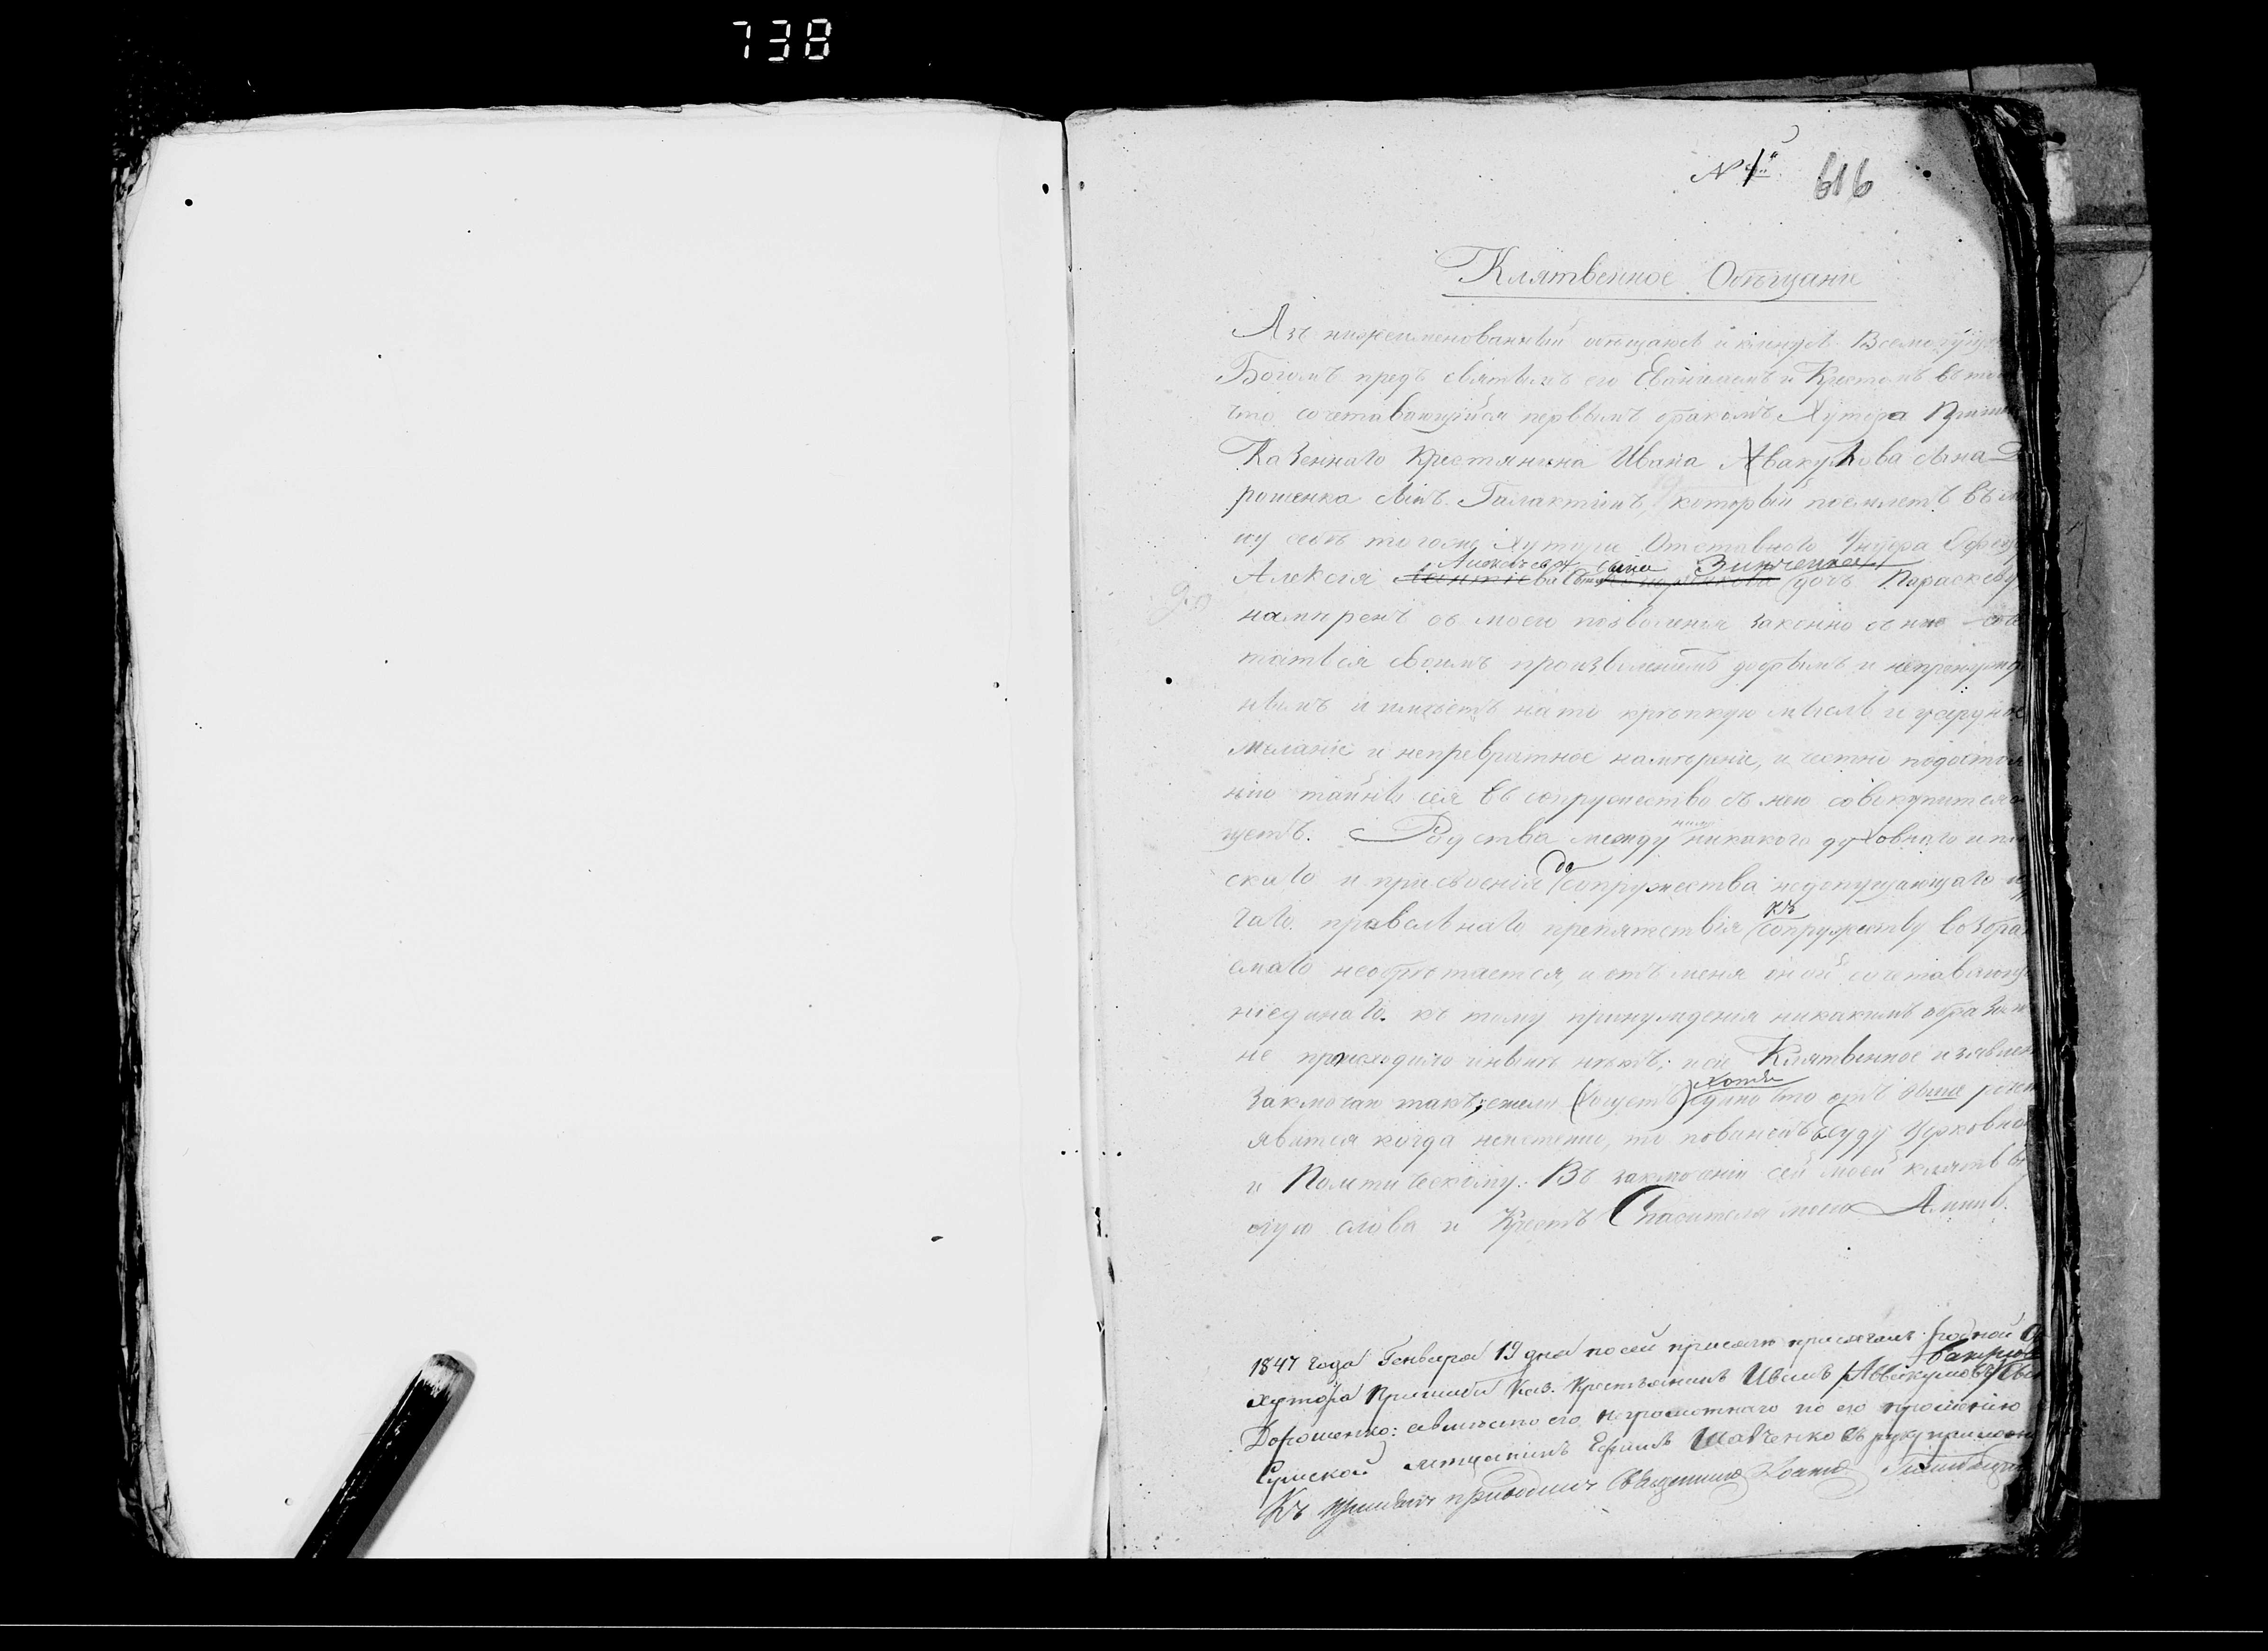 738
№ 1й
616
Клятвенное Обѣщание
Азъ нижеименованный обѣщаюсь и клянусь Всемогущи
Богомъ предъ святымъ его Евангелиемъ и Крестомъ въ том
что сочетавающийся первымъ бракомъ Хутора
Казеннаго Крестянина Ивана Авакумова сына До
рошенка сынъ Галактионъ, который поемлетъ въ
ну себѣ того же Хутора Отставного Унтера Офице
Алексеевя сына Зинченка
Алексія дочь Параскеву
намиренъ съ моего позволенія законно съ нею соче
татися своимъ произволениемъ добрымъ и непренужд
нымъ и имѣетъ на то крѣпкую мысль и усердное
желаніе и непревратное намѣреніе, и честно по достоя
нію тайны сея въ сопружество съ нею совокупитися
щетъ. Родства между ними никакого духовнаго и пло
скаго и присвоенія до сопружества недопущающаго
гаго правильнаго препятствія къ сопружеству возбра
емаго необрѣтается, и отъ меня оной сочетавающи
ниединаго къ тому принуждения никакимъ образом
не происходило и нынѣ нѣтъ; и сие Клятвенное изявлен
Заключаю такъ, ежели (будетъ) хотя едино что отъ выше речен
явится когда неистенно, то повиненъ суду Церковно
и Политическому. Въ заключении сей моей клятвы
лую слова и Крестъ Спасителя моего Аминь.
1847 года Генваря 19 дня по сей присягѣ присягалъ родной О
хутора Каз. Крестьянинъ Иванъ Аввакумовъ
Дорошенко: а вмѣсто его неграмотнаго по его прошению
Сумской мещанинъ Ефимъ Шевченко руку приложи
Къ присягѣ приводилъ Священникъ Иоаннъ